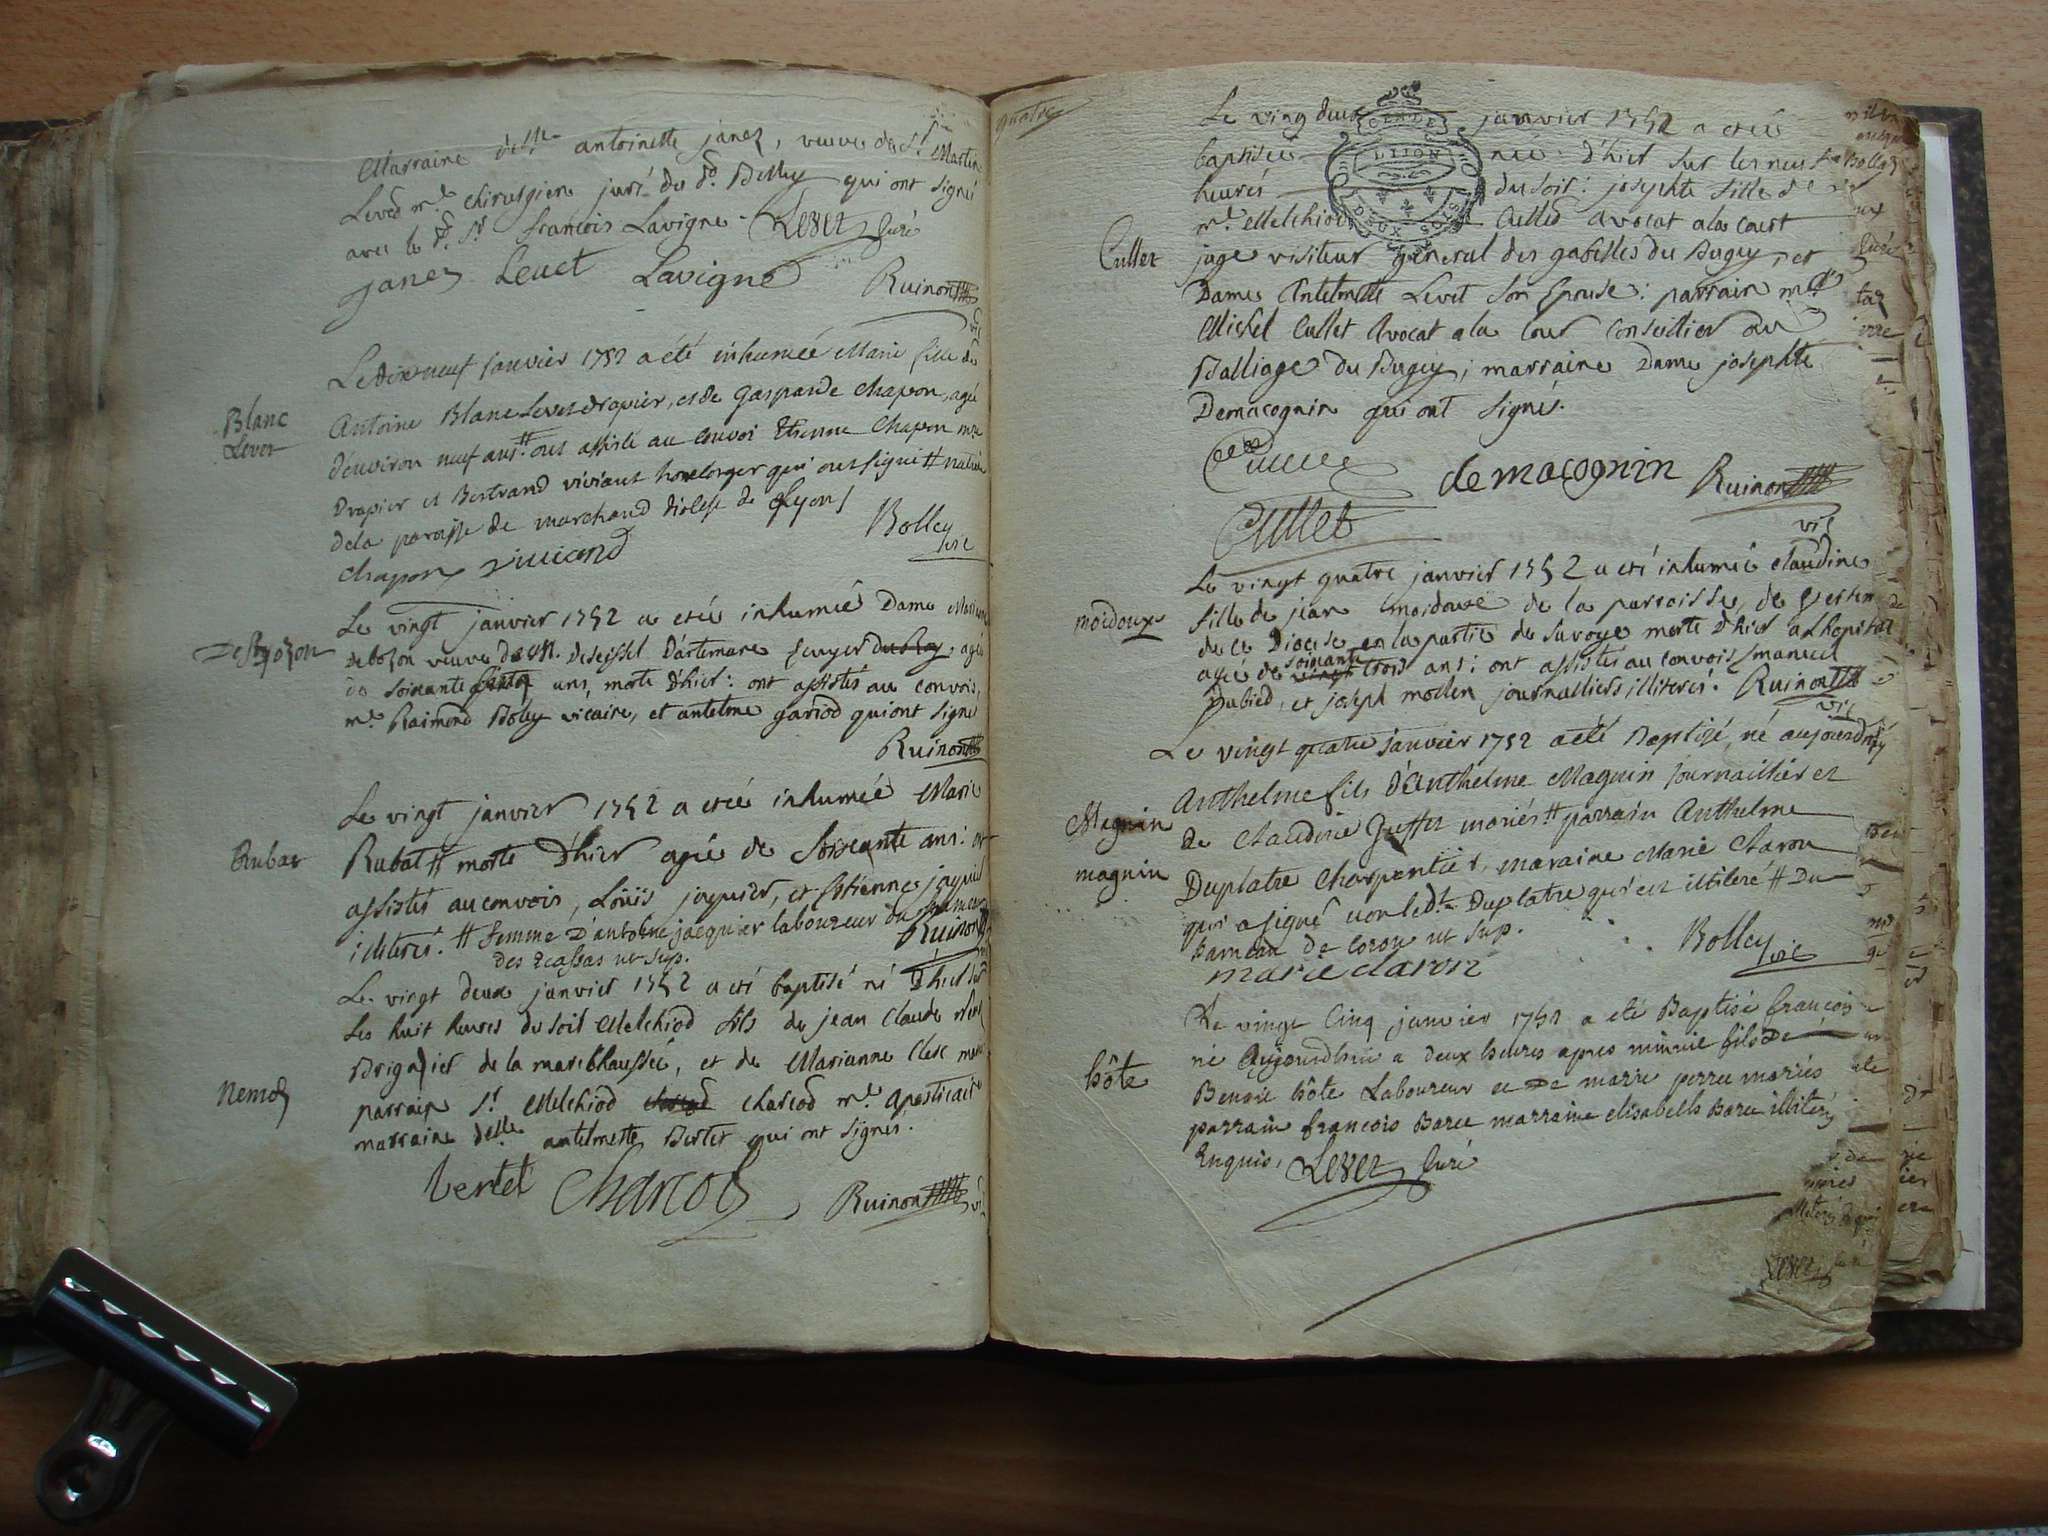 Marraine delle antoinette janez, veuve du Sr Martin
Levet me chirurgien juré du d. Belley qui ont signé
avec le d. Sr françois Lavigne. Levet Curé
janez Levet Lavigne
Ruinon vic
Le dix neuf janvier 1752 a été inhumée Marie fille de
Blanc
Levet
Antoine Blanc Levet drapier, et de Gasparde Chapon, agée
d'environ neuf ans. ont assisté au convoi Etienne Chapon me
Drapier et Bertrand viviant horloger qui ont signé # natif
de la paroisse de marchand diocese de Lyon
chapon viviand
Bolley vic
Le vingt janvier 1752 a etée inhumée Dame Marianne
De Bozon
debozon veuve de M. deseissel D'artemare Ecuyer, agée
de soixante ans, morte D'hier: ont assistés au convois,
me Raimond Boley vicaire, et antelme gariod qui ont signé
Ruinon
Le vingt janvier 1752 a etée inhumée Marie
Rubat
Rubat # morte D'hier agée de soixante ans: ont
assistés au convois, Loüis jaquier, et Etienne jaquier
illiterés. # femme D'antoine jacquier laboureur du hameau
des Ecassas ut sup. Ruinon
Le vingt deux janvier 1752 a été baptisé né D'hier sur
les huit heures du soir Melchiod fils de jean Claude
Brigadier de la marechaussée, et de Marianne Clerc
Nemoz
parrain Sr Melchiod charcod me apoticaire
marraine delle antelmette Bertet qui ont signés.
bertet Charcot Ruinon vic
quatre
Le vingt deux janvier 1752 a etée
baptisée née d'hier sur les neuf
heures du soir: josephte fille de
GENE DIJON DEUX SOLS
me Melchiod Cullet avocat a la court
Cullet
juge visiteur general des gabelles du Bugey, et
Dame Antelmette Levet son Epouse: parrain me
Michel Cullet Avocat a la Cour Conseillier au
Balliage du Bugey; marraine Dame josephte
Demacognin qui ont signés.
Cullet demacognin Ruinon vic
Cullet
Le vingt quatre janvier 1752 a été inhumée claudine
moidoux
fille de jean moidoux de la parroisse de
de ce Diocese en la partie de Savoye morte d'hier a l'hopital
agée de soixante trois ans: ont assistés au convois Emanuel
Dubied, et joseph mollen journalliers illiterés. Ruinon vic
Le vingt quatre janvier 1752 a été Baptisé, né aujourd'huy
Anthelme fils d'Anthelme Magnin journaillier et
Magnin
magnin
de Claudine Juffet mariés # parrain Anthelme
Duplatre Charpentier, maraine Marie Charon
qui a signé non led. Duplatre qui est illiteré # Du
hameau de Coron ut sup.
marie claron
Bolley vic
Le vingt Cinq janvier 1752 a été Baptisé françois
né Aujourdhui a deux heures apres minuit fils De
hôte
Benoit hôte Laboureur et De marie perre mariés
parrain françois Baret marraine elisabeth Baret illiterés
Enquis, Levet Curé